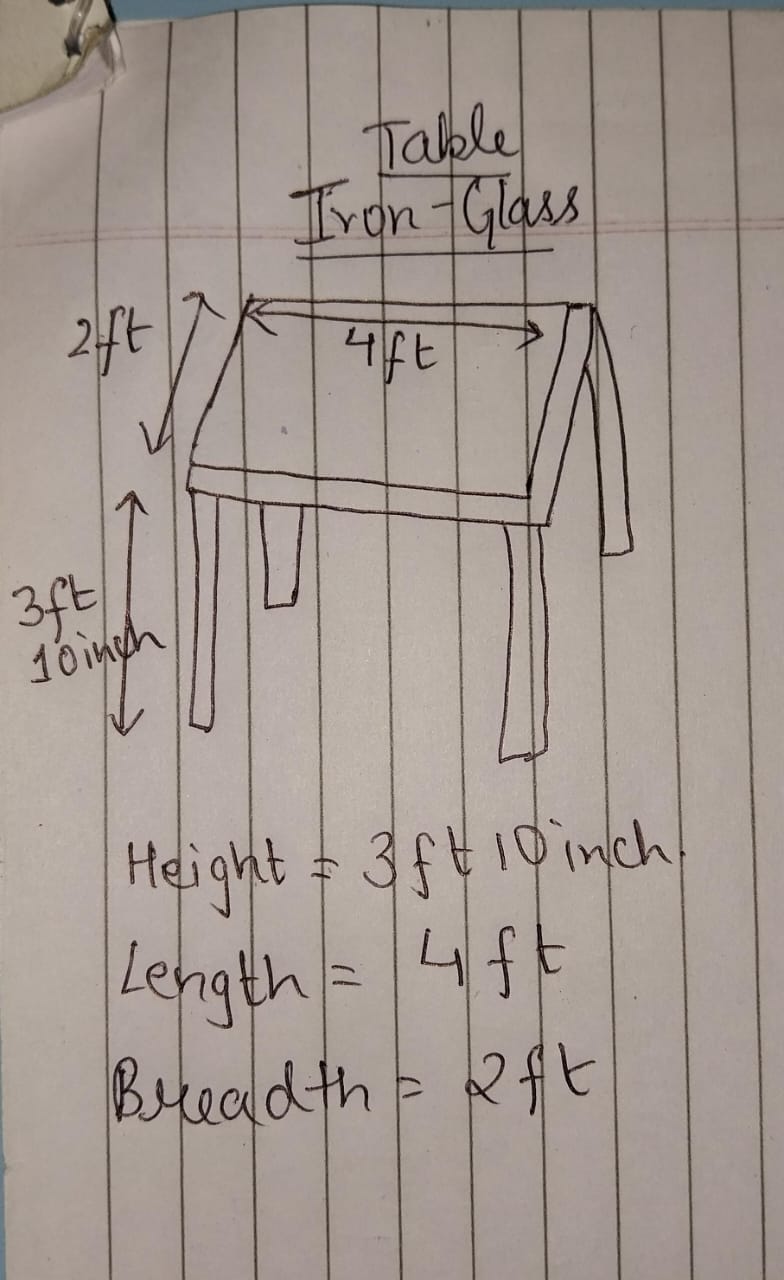 Table
Iron-Glass
2ft
4ft
3ft
10inch
Height = 3ft 10inch.
Length = 4ft
Breadth = 2ft